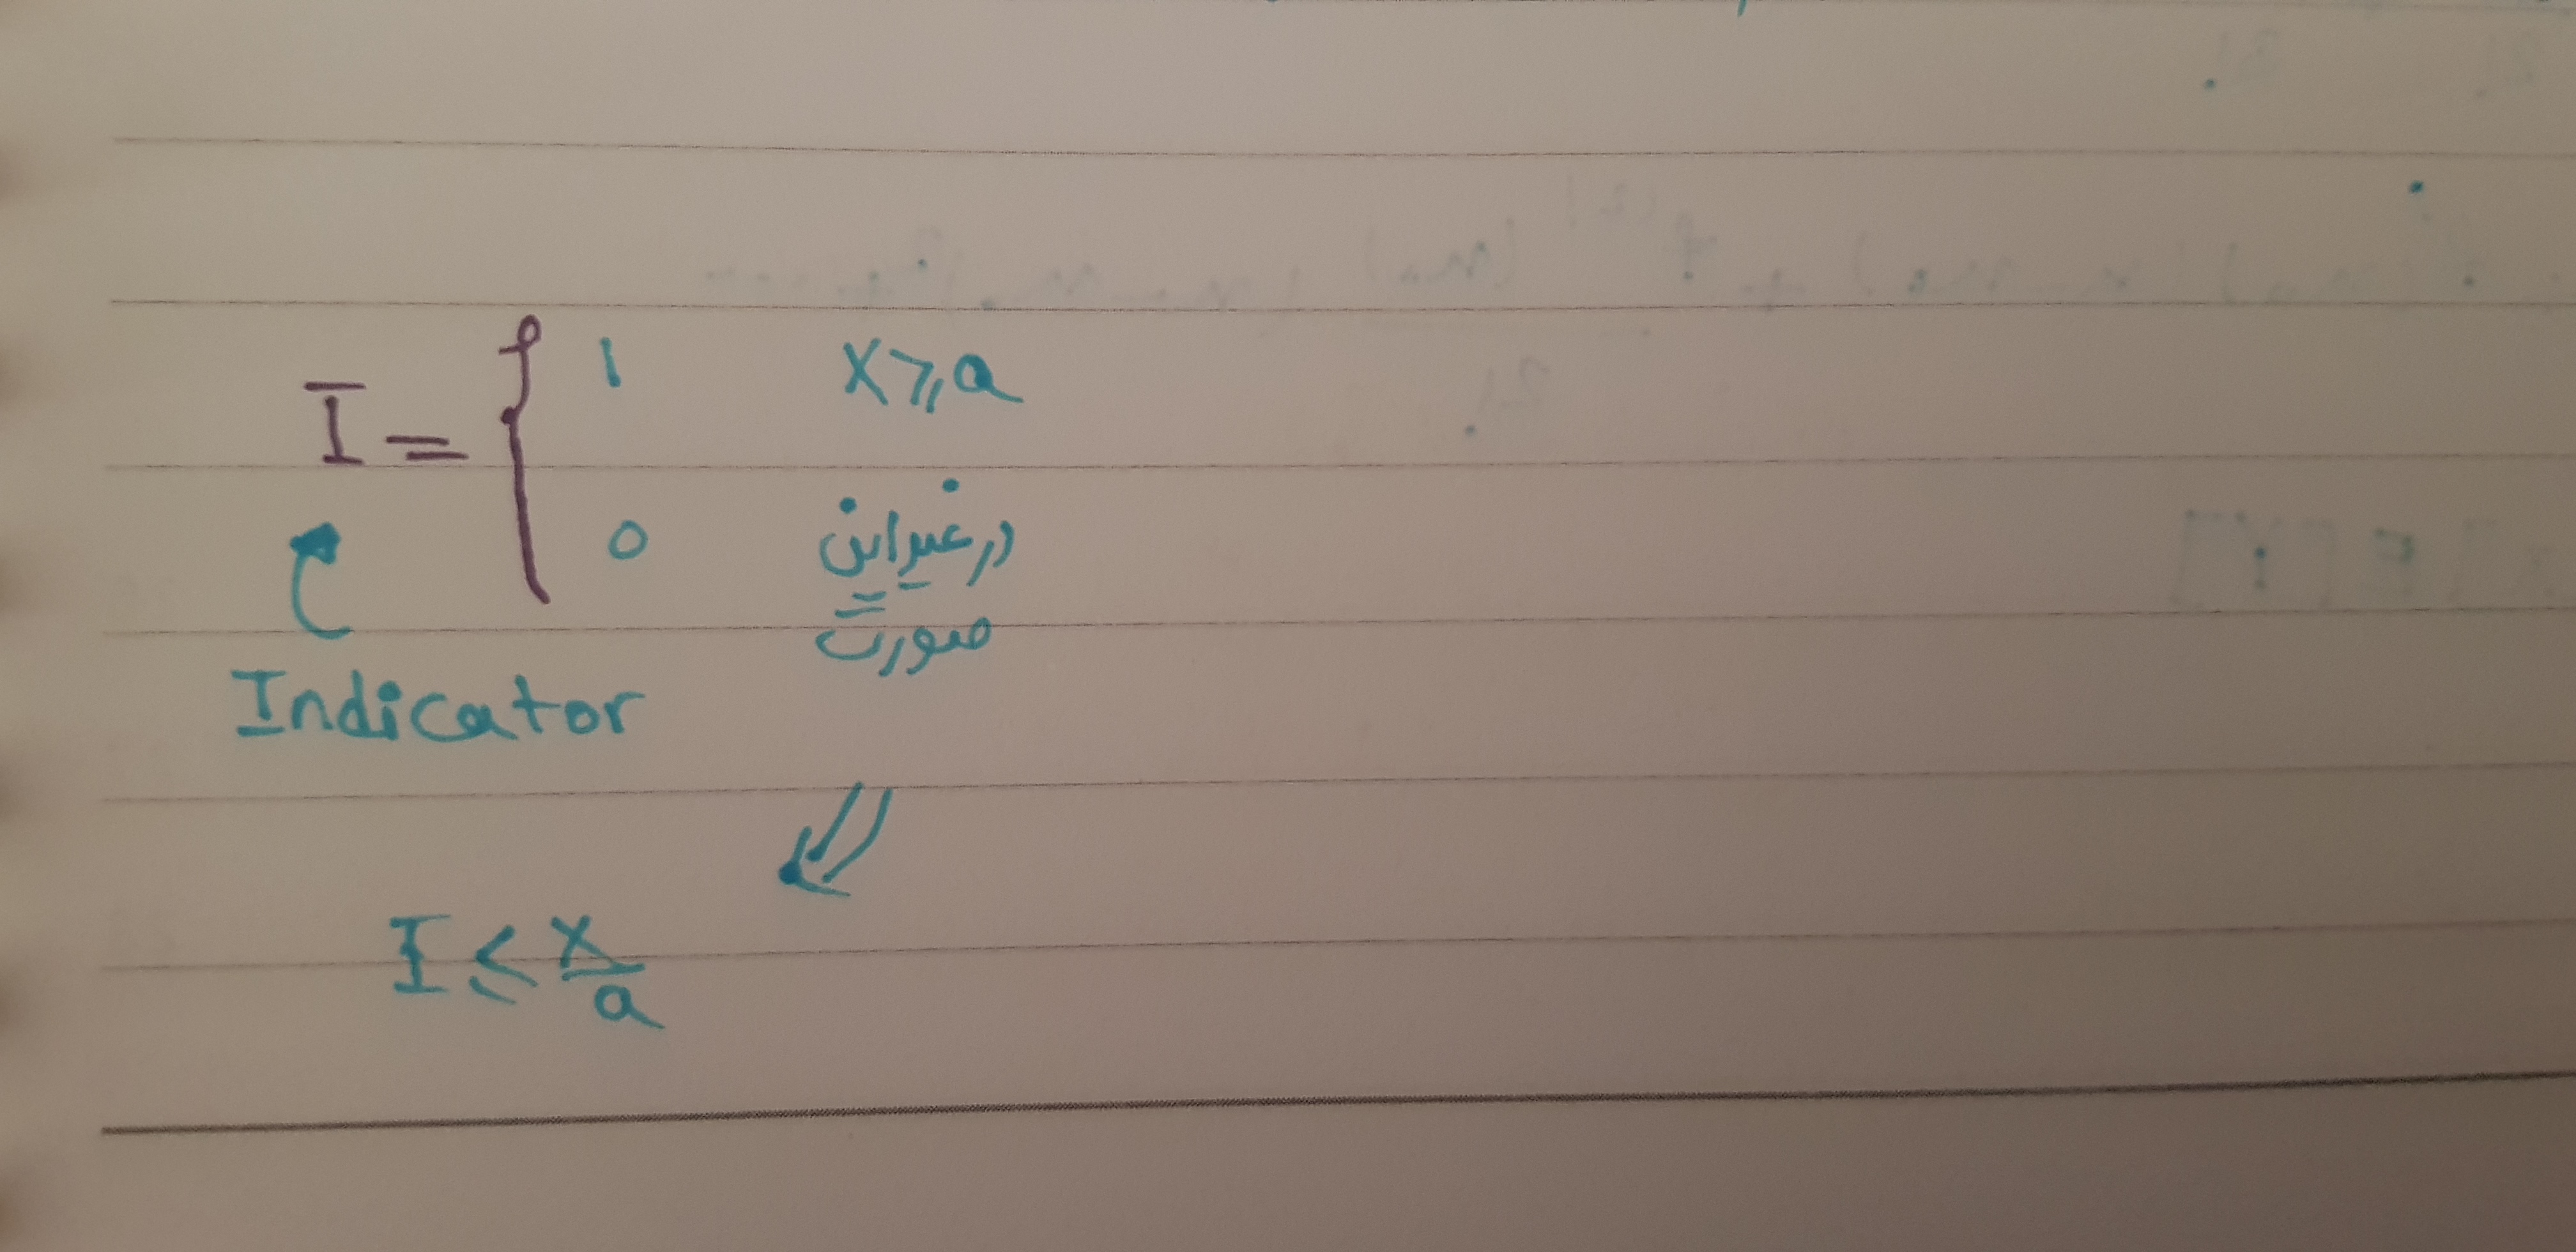 I = { 1 X ⩾ a
0 در غیر این صورت
Indicator
I ≤ X/a